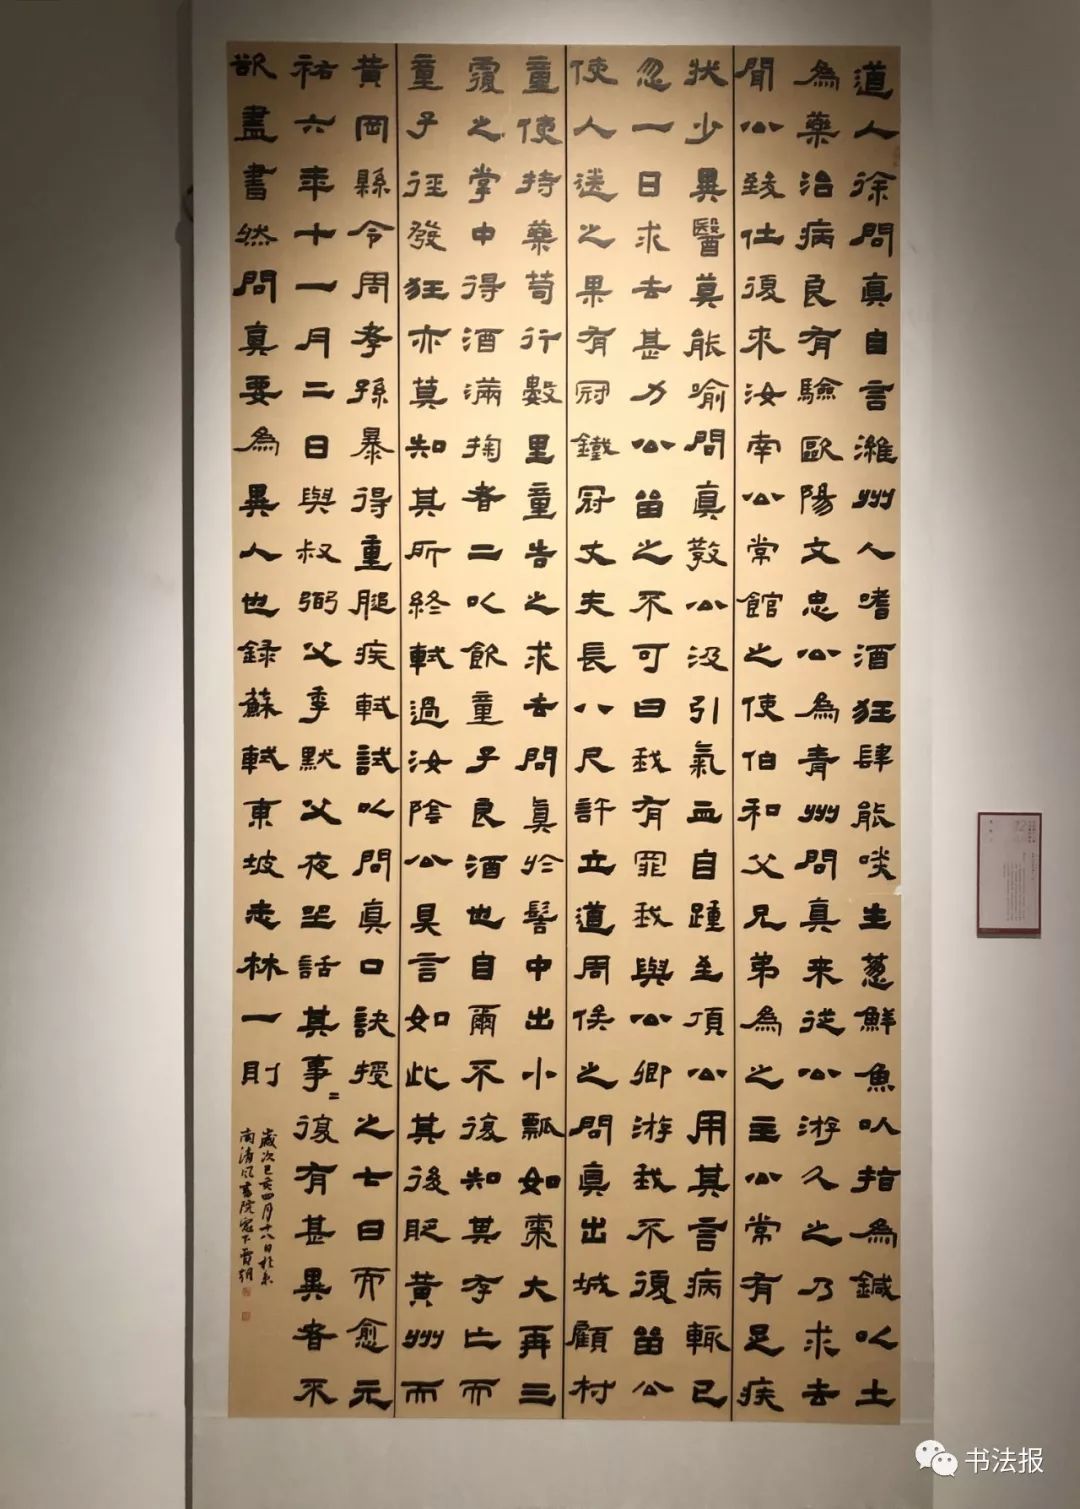 道人徐問真自言濰州人嗜酒狂肆能啖生葱鮮魚以指為鍼以土
為藥治病良有驗歐陽文忠公為青州問真來從公游久之乃求去
聞公致仕復來汝南公常館之使伯和父兄弟為之主公常有足疾
狀少異醫莫能喻問真教公汲引氣血自踵至頂公用其言病輒已
忽一日求去甚力公留之不可曰我有罪我與公卿游我不復留公
使人送之果有冠鐵冠丈夫長八尺許立道周俟之問真出城顧村
童使持藥笥行數里童告之求去問真於髻中出小瓢如棗大再三
覆之掌中得酒滿掬者二以飲童子良酒也自爾不復知其存亡而
童子徑發狂亦莫知其所終軾過汝陰公具言如此其後貶黃州而
黃岡縣令周孝孫暴得重膇疾軾試以問真口訣授之七日而愈元
祐六年十一月二日與叔弼父季默父夜坐話其事=復有甚異者不
欲盡書然問真要為異人也録蘇軾東坡志林一則
歲次己亥四月十八日於京
南清風書院窗下賈朝
书法报